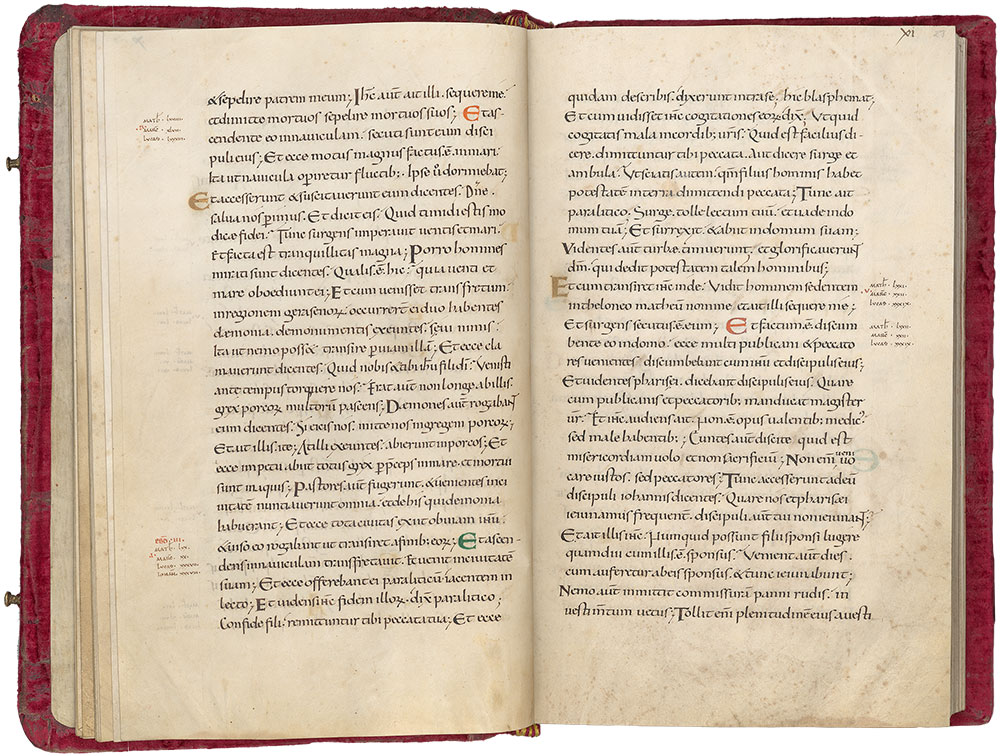 & sepelire patrem meum; Ihc̄ aūt ait illi. sequere me.
et dimitte mortuos sepelire mortuos suos; Et as-
cendente eo in naviculam. secuti sunt eum disci
puli eius; Et ecce motus magnus factus ē in mari.
ita ut navicula operiretur fluctib:. Ipse ū dormiebat;
Et accesserunt & suscitaverunt eum dicentes. Dn̄e
salva nos p̄imus. Et dicit eis. Quid timidi estis mo
dicæ fidei. Tunc surgens imperavit ventis et mari.
Et facta est tranquillitas magna; Porro homines
mirati sunt dicentes. Qualis ē hic. quia venti et
mare oboediunt ei; Et cum venisset transfretum
in regionem gerasenoꝝ occurrerunt ei duo habentes
dæmonia. de monumentis exeuntes. sevi nimis.
Ita ut nemo poss& transire per viam illā; Et ecce cla
maverunt dicentes. Quid nobis & tibi ih̄u fili dī. Venisti
ante tempus torquere nos. Erat aūt non longe ab illis.
gyx porcoꝝ multorū pascens; Dæmones aūt rogabant
eum dicentes. Si eicis nos. mitte nos in gregem porcoꝝ.
Et ait illis. ite; At illi exeuntes. abierunt in porcos; Et
ecce impetu abiit totus gryx p̄ p̄ceps in mare. et mortui
sunt in aquis; Pastores aūt fugerunt. & venientes in ci
vitatē nuntiaverunt omnia. et de his qui demonia
habuerant; Et ecce tota civitas exiit obviam ih̄u.
& viso eo rogabant ut transiret a finib: eoꝝ; Et ascen-
dens in naviculam transfretavit. Et venit in civitatē
suam; Et ecce offerebant ei paraliticū iacentem in
lecto; Et videns ihc̄ fidem illoꝝ. dix̄ paralitico;
Confide fili. remittuntur tibi peccata tua; Et ecce
Math̄ . lxviiii.
Lucas
eūs . viii.
Math̄ . lxx.
Marc̄ . xx.
Lucas . xxxvii.
Iohan̄ . xxxviii.
XI
27
quidam de scribis. dixerunt intra se. hic blasphemat;
Et cum vidisset ihc̄ cogitationes eoꝝ dix̄; Ut quid
cogitatis mala in cordib; vr̄is. Quid est facilius di-
cere. dimittuntur tibi peccata. Aut dicere surge et
ambula. Ut sciatis autem. qm̄ filius hominis habet
potestatē in terra dimittendi peccata; Tunc ait
paralitico. Surge. tolle lectum tuū. et vade in do
mum tuā; Et surrexit. & abiit in domum suam;
Videntes aūt turbæ timuerunt. et glorificaverunt
dm̄. qui dedit potestatem talem hominibus;
Et cum transiret ihc̄ inde. Vidit hominem sedentem
in theloneo matheū nomine. et ait illi sequere me;
Et surgens secutus ē eum; Et factum ē discum
bente eo in domo. ecce multi publicani & peccato
res venientes. discumbebant cum ih̄u et discipulis eius;
Et videntes pharisei. dicebant discipulis eius. Quare
cum publicanis et peccatorib; manducat magister
vr̄. Et ihc̄ audiens ait. Non ē opus valentib; medic᾽.
sed male habentib:; Euntes aūt discite quid est
misericordiam volo et non sacrificiū; Non enī veni vo
care iustos. sed peccatores; Tunc accesserunt ad eū
discipuli iohannis dicentes. Quare nos et pharisei
ieiunamus frequent̄. discipuli aūt tui non ieiunant;
Et ait illis ihc̄. Numquid possunt filii sponsi lugere
quamdiu cum illis ē sponsus. Venient aūt dies.
cum auferetur ab eis sponsus. & tunc ieiunabunt;
Nemo aūt immittit commissurā panni rudis. in
vestim̄tum vetus; Tollit enī plenitudinē eius a vesti
Math̄ . lxxi.
Marc̄ . xxi.
Lucas . xxxix.
Math̄ . lxxii.
Marc̄ . xxii.
Lucas . xxxix.